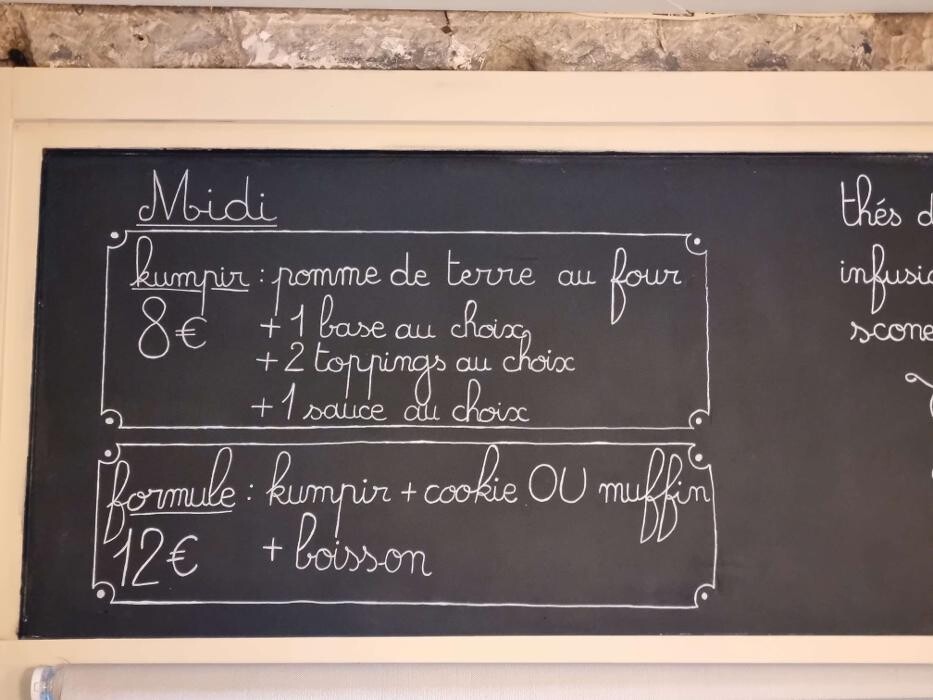 Midi
kumpir : pomme de terre au four
8€ + 1 base au choix
+ 2 toppings au choix
+ 1 sauce au choix
formule : kumpir + cookie OU muffin
12€ + boisson
thés d
infusio
scone